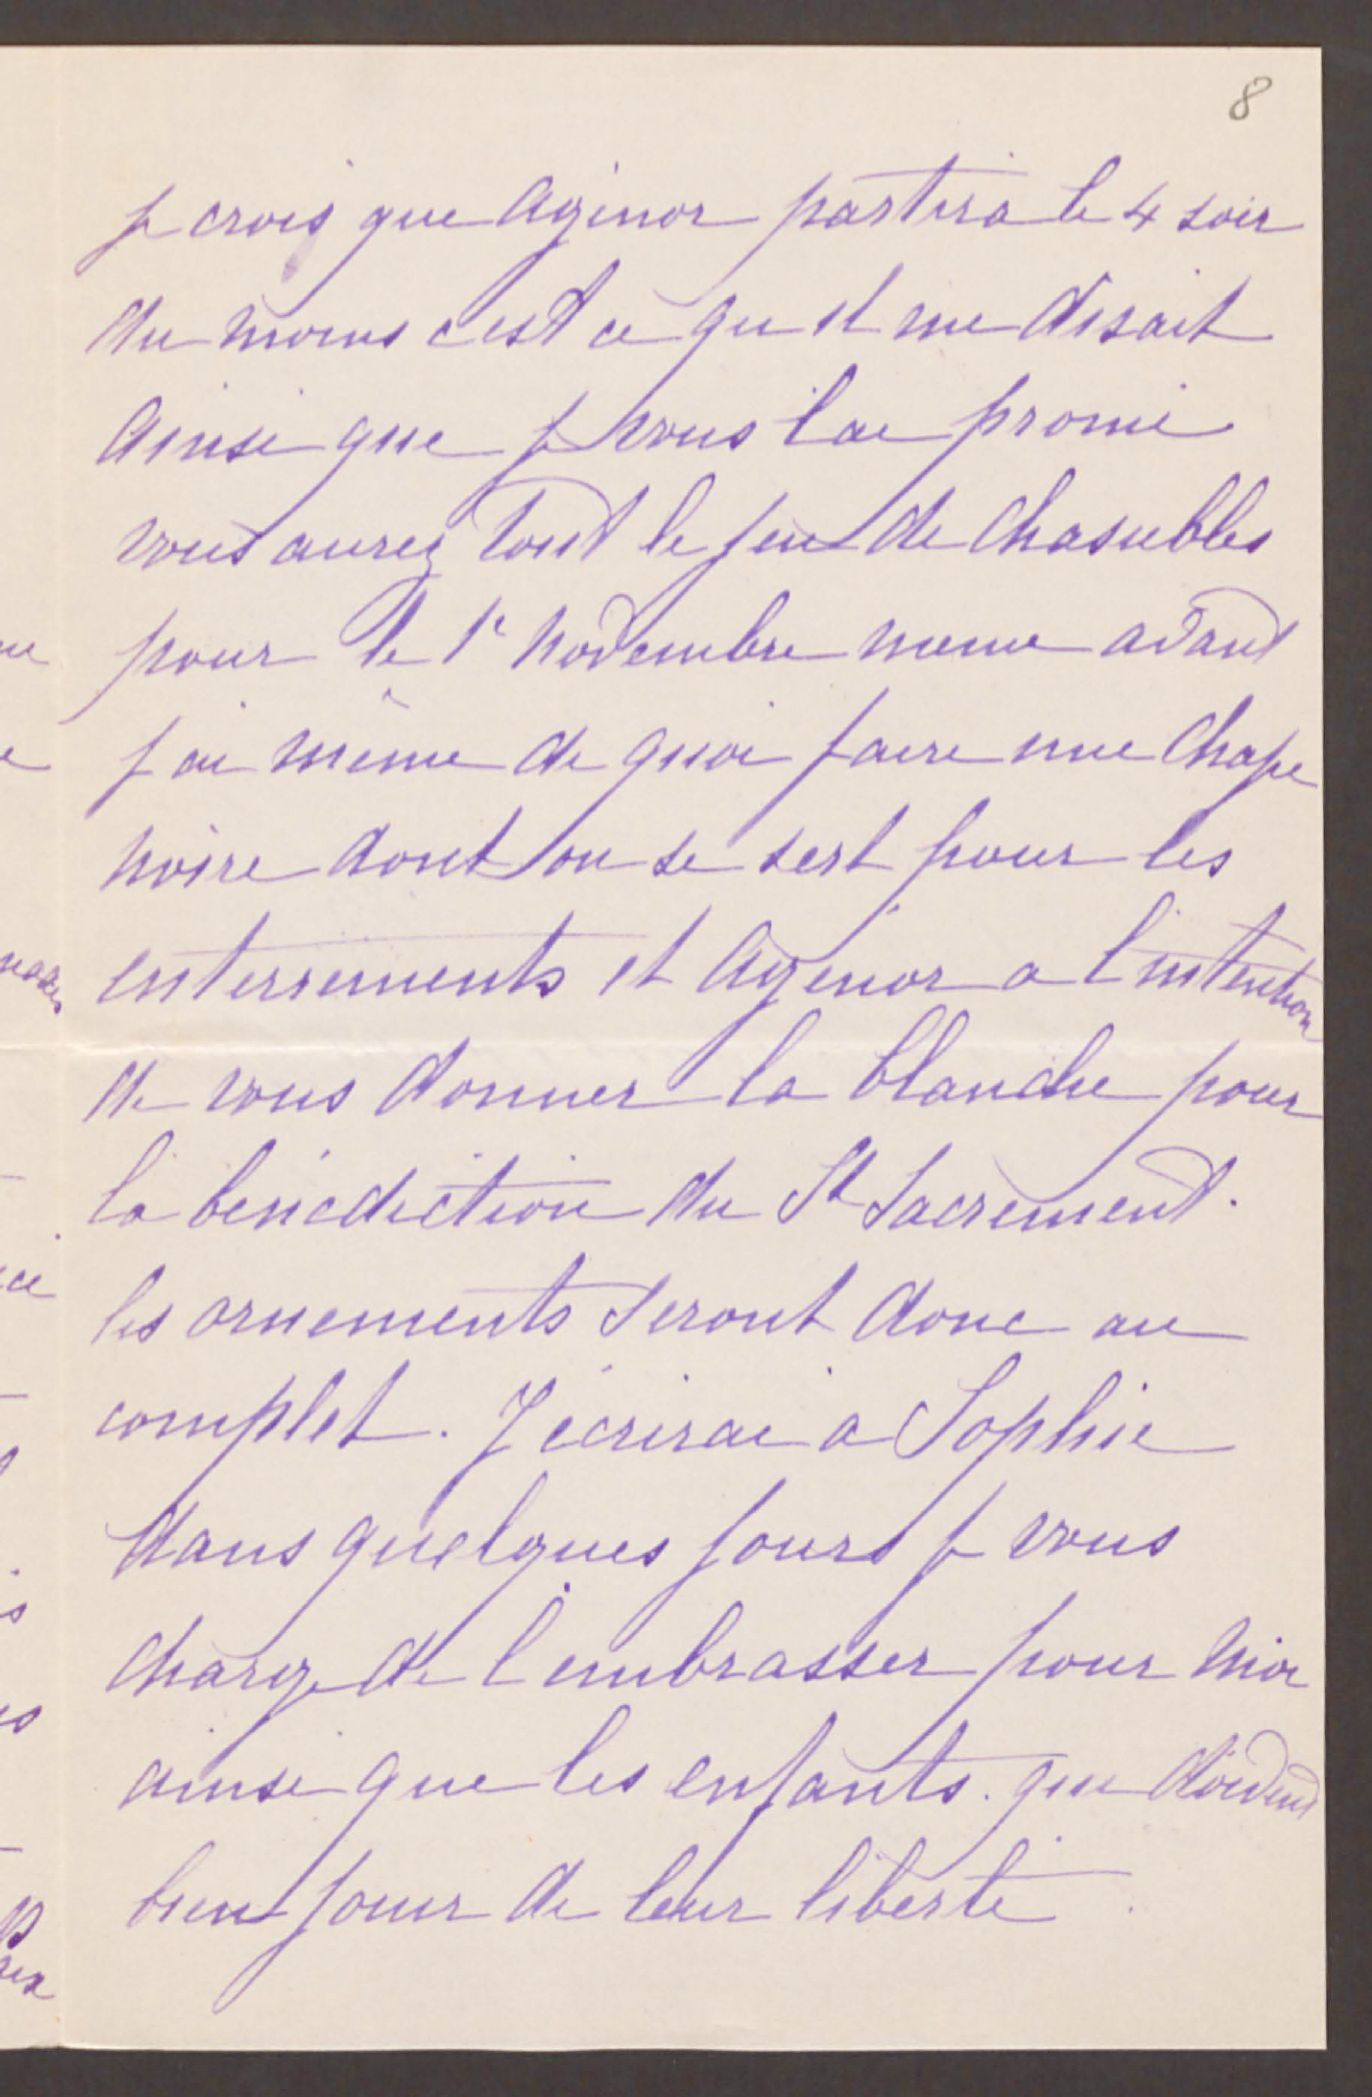 8
je crois que Agénor partira le 4 soir
du moins c'est ce qu'il me disait
Ainsi que je vous l'ai promi
vous aurez tout le jeu de chasubles
pour le 1r Novembre meme avant
j'ai même de quoi faire une chape
noire dont on se sert pour les
enterrements et Agénor a l'intention
de vous donner la blanche pour
la bénédiction du St Sacrement.
les ornements seront donc au
complet. J'écrirai a Sophie
dans quelques jours je vous
charge de l'embrasser pour moi
ainsi que les enfants. qui doivent
bien jouir de leur liberté.